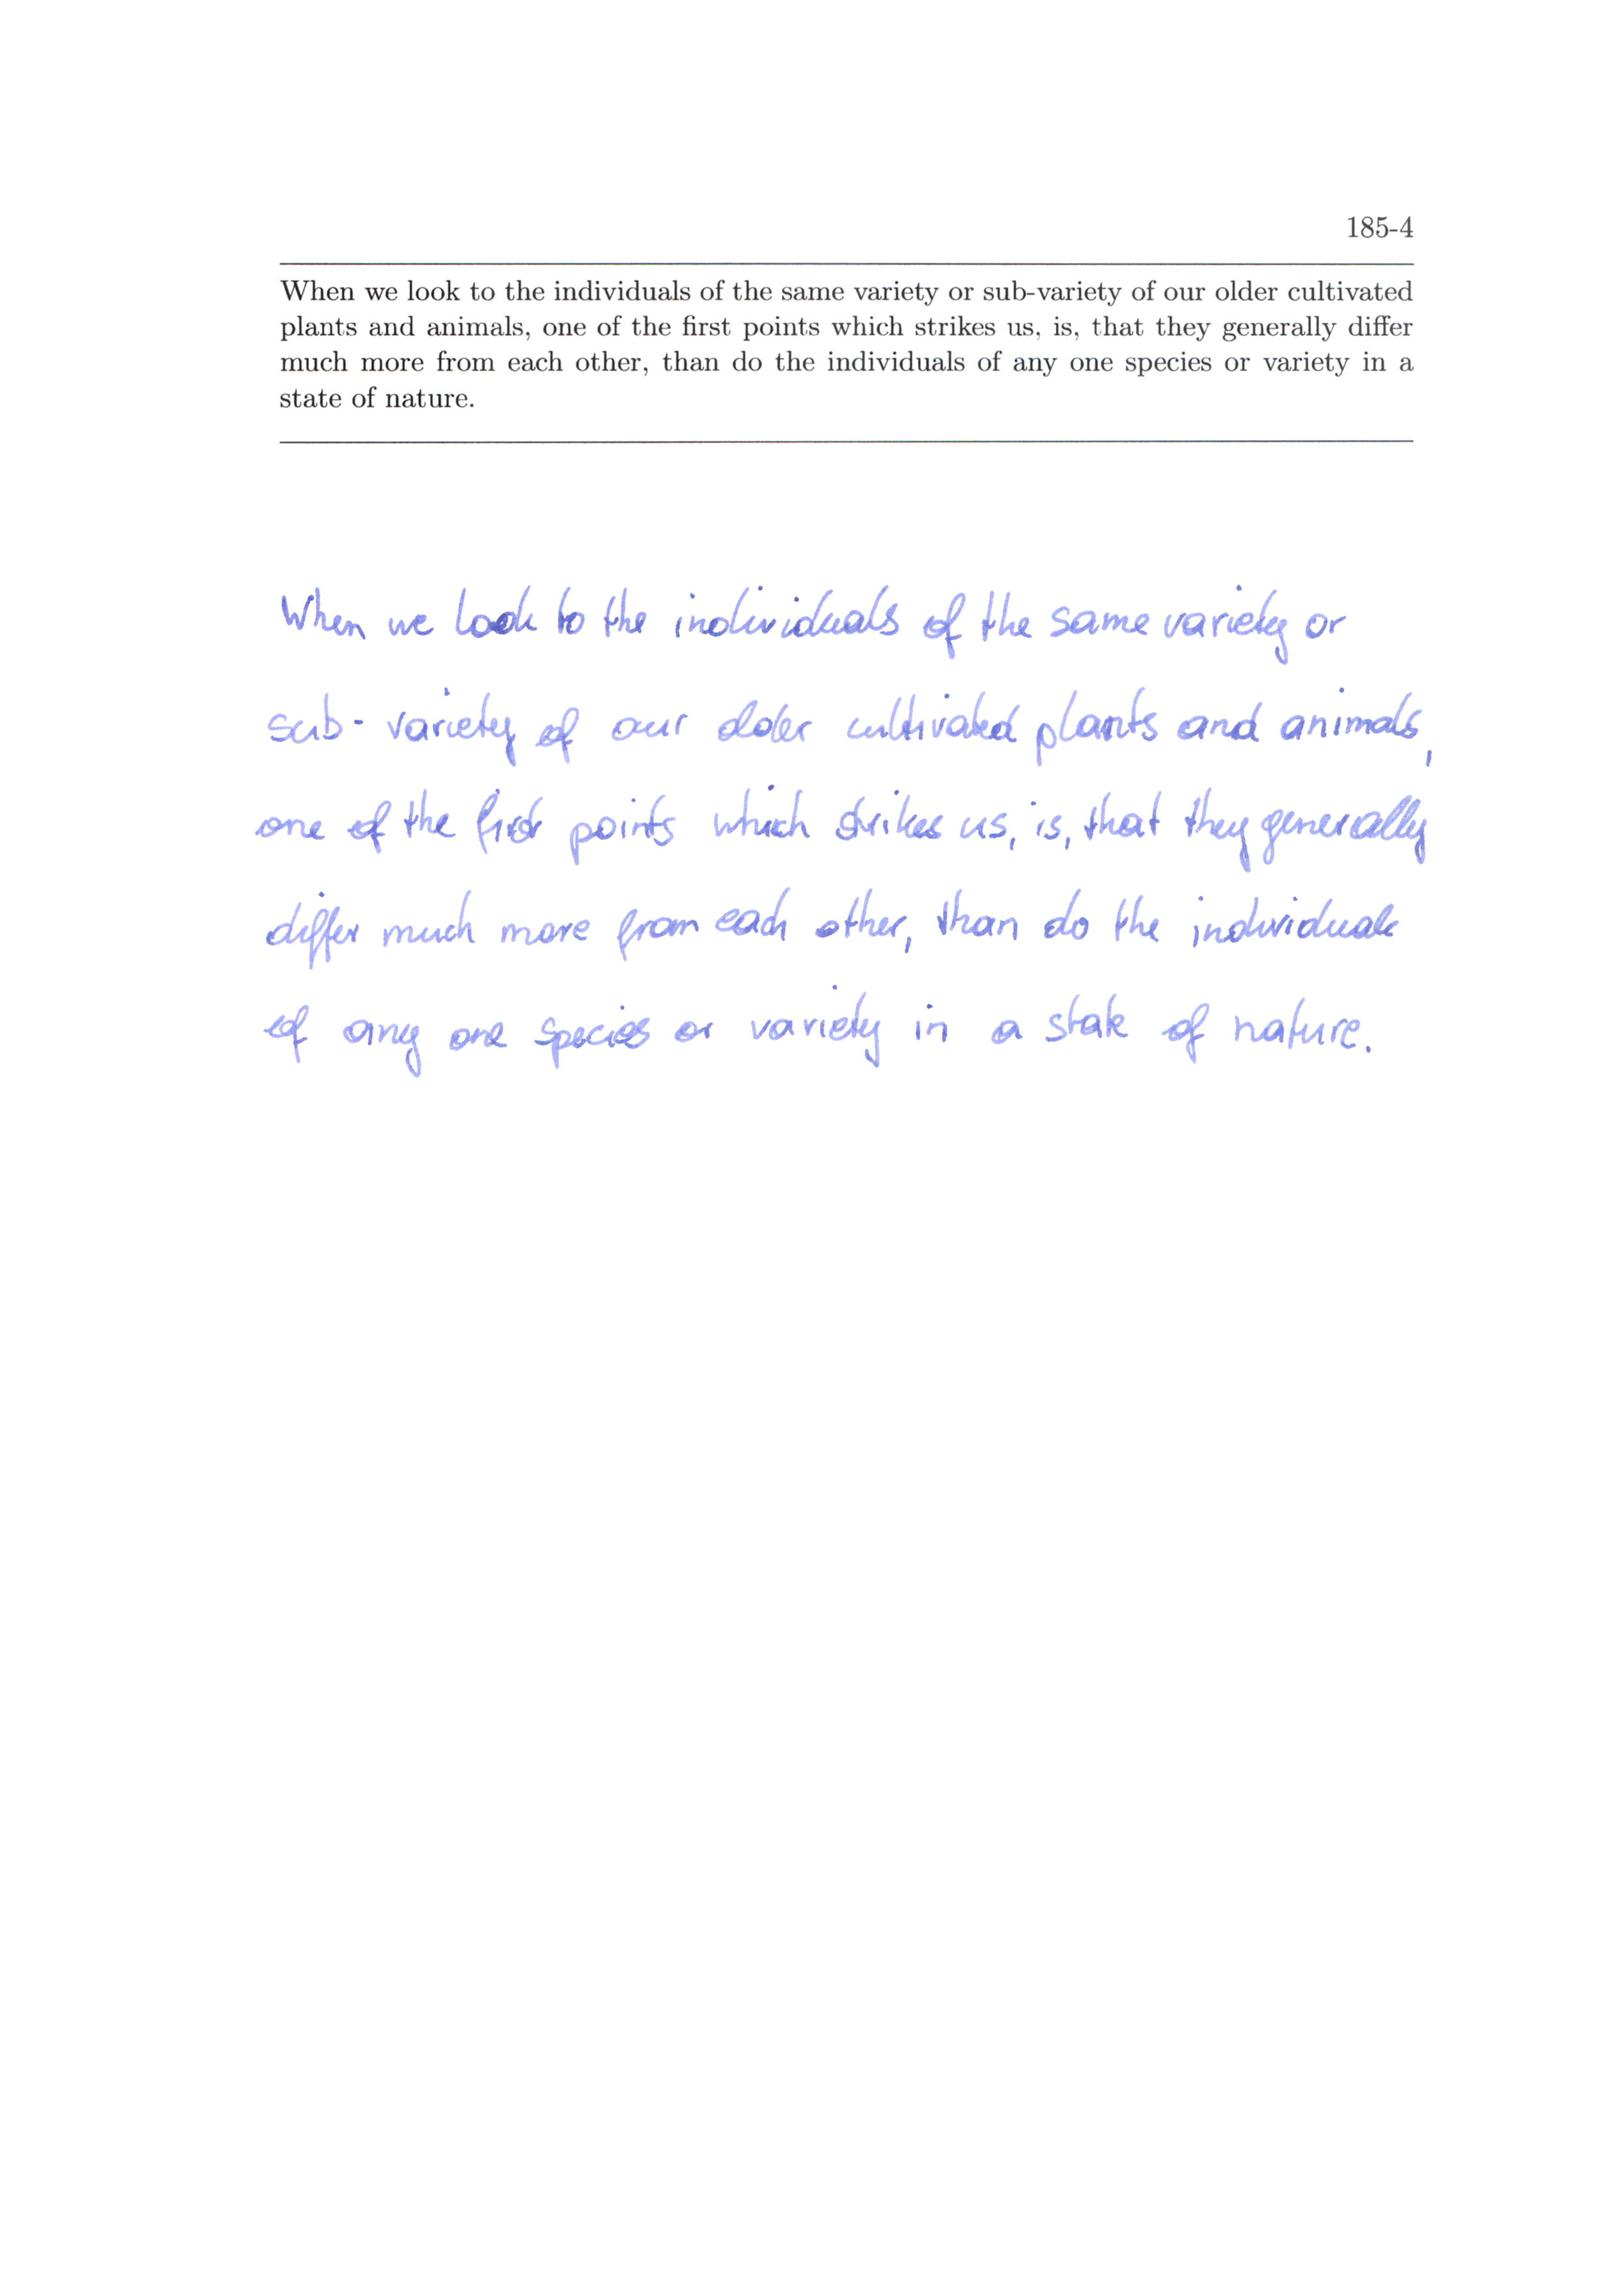 185-4
When we look to the individuals of the same variety or sub-variety of our older cultivated
plants and animals, one of the first points which strikes us, is, that they generally differ
much more from each other, than do the individuals of any one species or variety in a
state of nature.
When we look to the individuals of the same variety or
sub-variety of our older cultivated plants and animals,
one of the first points which strikes us, is, that they generally
differ much more from each other, than do the individuals
of any one species or variety in a state of nature.